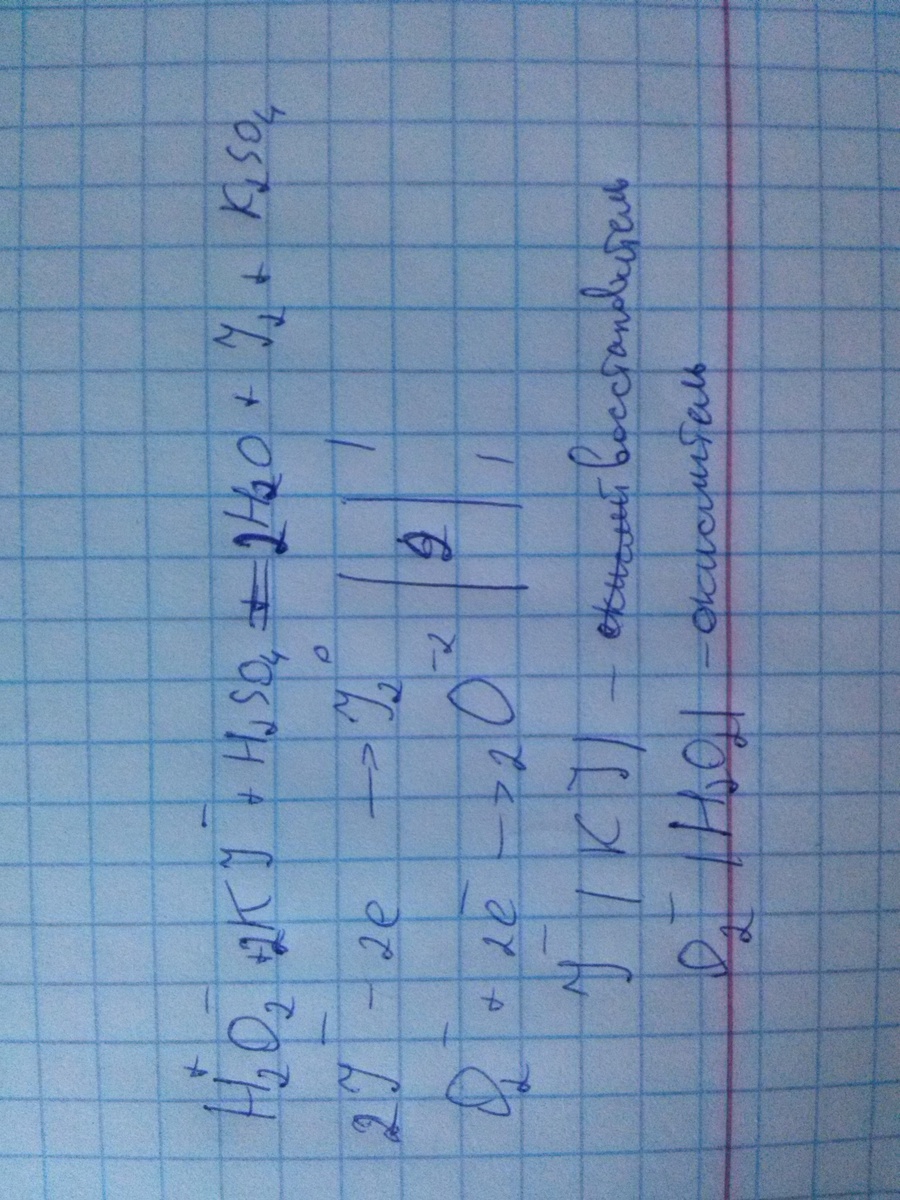 H₂⁺O₂⁻ + 2KJ⁻ + H₂SO₄ = 2H₂O + J₂ + K₂SO₄
2J⁻ - 2e → J₂⁰ | | 1
O₂⁻ + 2e⁻ → 2O⁻² | 2 | 1
J⁻ (KJ) - восстановитель
O₂⁻ (H₂O₂) - окислитель